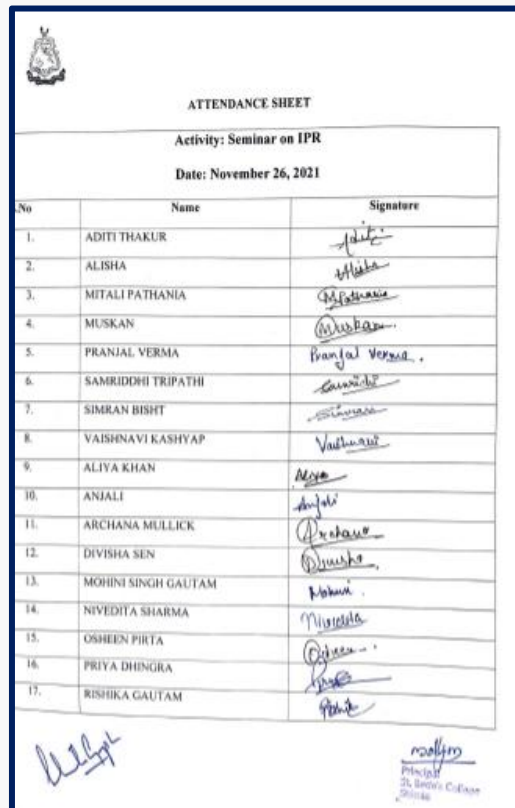 ATTENDANCE SHEET
Activity: Seminar on IPR
Date: November 26, 2021
.No Name Signature
1. ADITI THAKUR Aditi
2. ALISHA Alisha
3. MITALI PATHANIA MPathania
4. MUSKAN Muskan.
5. PRANJAL VERMA Pranjal Verma.
6. SAMRIDDHI TRIPATHI Samridhi
7. SIMRAN BISHT Simran
8. VAISHNAVI KASHYAP Vaishnavi
9. ALIYA KHAN Aliya
10. ANJALI Anjali
11. ARCHANA MULLICK Archana
12. DIVISHA SEN Divisha
13. MOHINI SINGH GAUTAM Mohini.
14. NIVEDITA SHARMA Nivedita
15. OSHEEN PIRTA Osheen
16. PRIYA DHINGRA
17. RISHIKA GAUTAM
Principal
St. Bede's College
Shimla